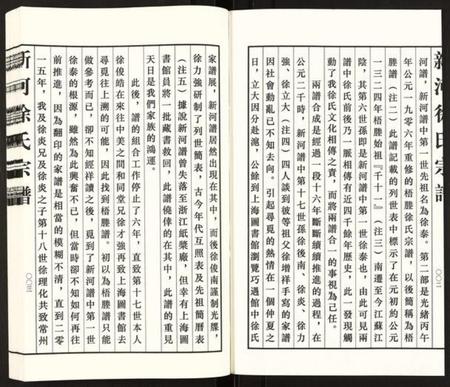 新河徐氏宗譜
河譜，新河譜中第一世先祖名為徐泰。第二部是光緒丙午
年公元一九零六年重修的梧塍徐氏宗譜，以後簡稱為梧
塍譜（注二）此譜記載的列世表中標示了在元初約公元
一三二四年梧塍始祖『千十一』（注三）南遷至今江蘇江
陰，其第六世孫即是新河譜中第一世徐泰也，由此可見兩
譜中徐氏前後乃一脈相傳有近四千餘年歷史，此一發現觸
動了我徐氏文化相傳之責，而將兩譜合一的事視為己任。
兩譜合成是經過一段十六年斷斷續續推進的過程，在
公元二千時，新河譜中第十七世孫徐後南、徐炎、徐力
強、徐立大（注四）四人談到彼等祖父徐增祥手寫的家譜
因社會動亂已不知去向。引起尋覓的熱情在一個仲夏之
日，立大因分赴滬，公餘到上海圖書館瀏覽巧遇館中徐氏
〇〇三
家譜展，新河譜居然出現在其中，而後徐俊南謹制光牒，
徐力強研制了列世簡表，古今年代互照表及先祖簡曆表
（注五）據說新河譜曾失落至浙江紙槳廠，但幸有上海圖
書館員將一批藏書救回，此譜僥倖的在其中，此譜的重見
天日是我們家族的鴻運。
此後，譜的組合工作停止了六年，直致第十七世本人
徐俊皓在來往中美之間和同堂兄徐才強再致上海圖書館去
尋覓往上溯的可能，因此找到梧塍譜。初以為梧塍譜只能
做參考而已，卻不知經祥讀之後，覓到了新河譜中第一世
徐泰的根源，雖然為此興奮不已，但當時卻不知如何再往
前推進，因為翻印的家譜是相當的模糊不清，直到二零
一五年，我及徐炎兄及徐炎之子第十八世徐理化共致常州
新河徐氏宗譜